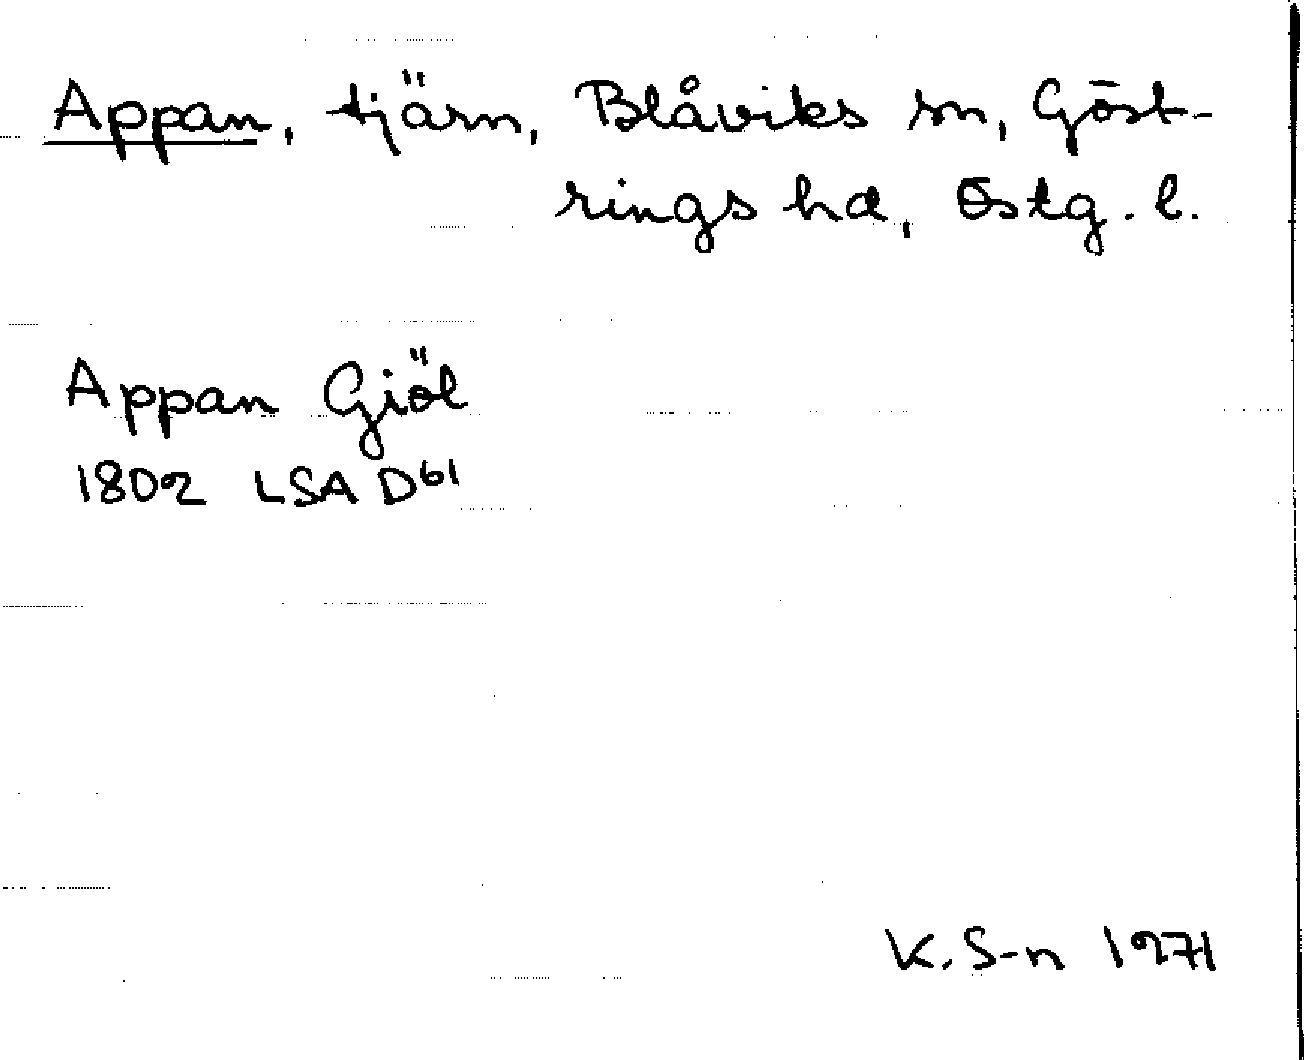 Appan, tjärn, Blåviks sn, Göst-
rings hd, Östg. l.
Appan Giöl
1802 LSA D61
K. S-n 1971